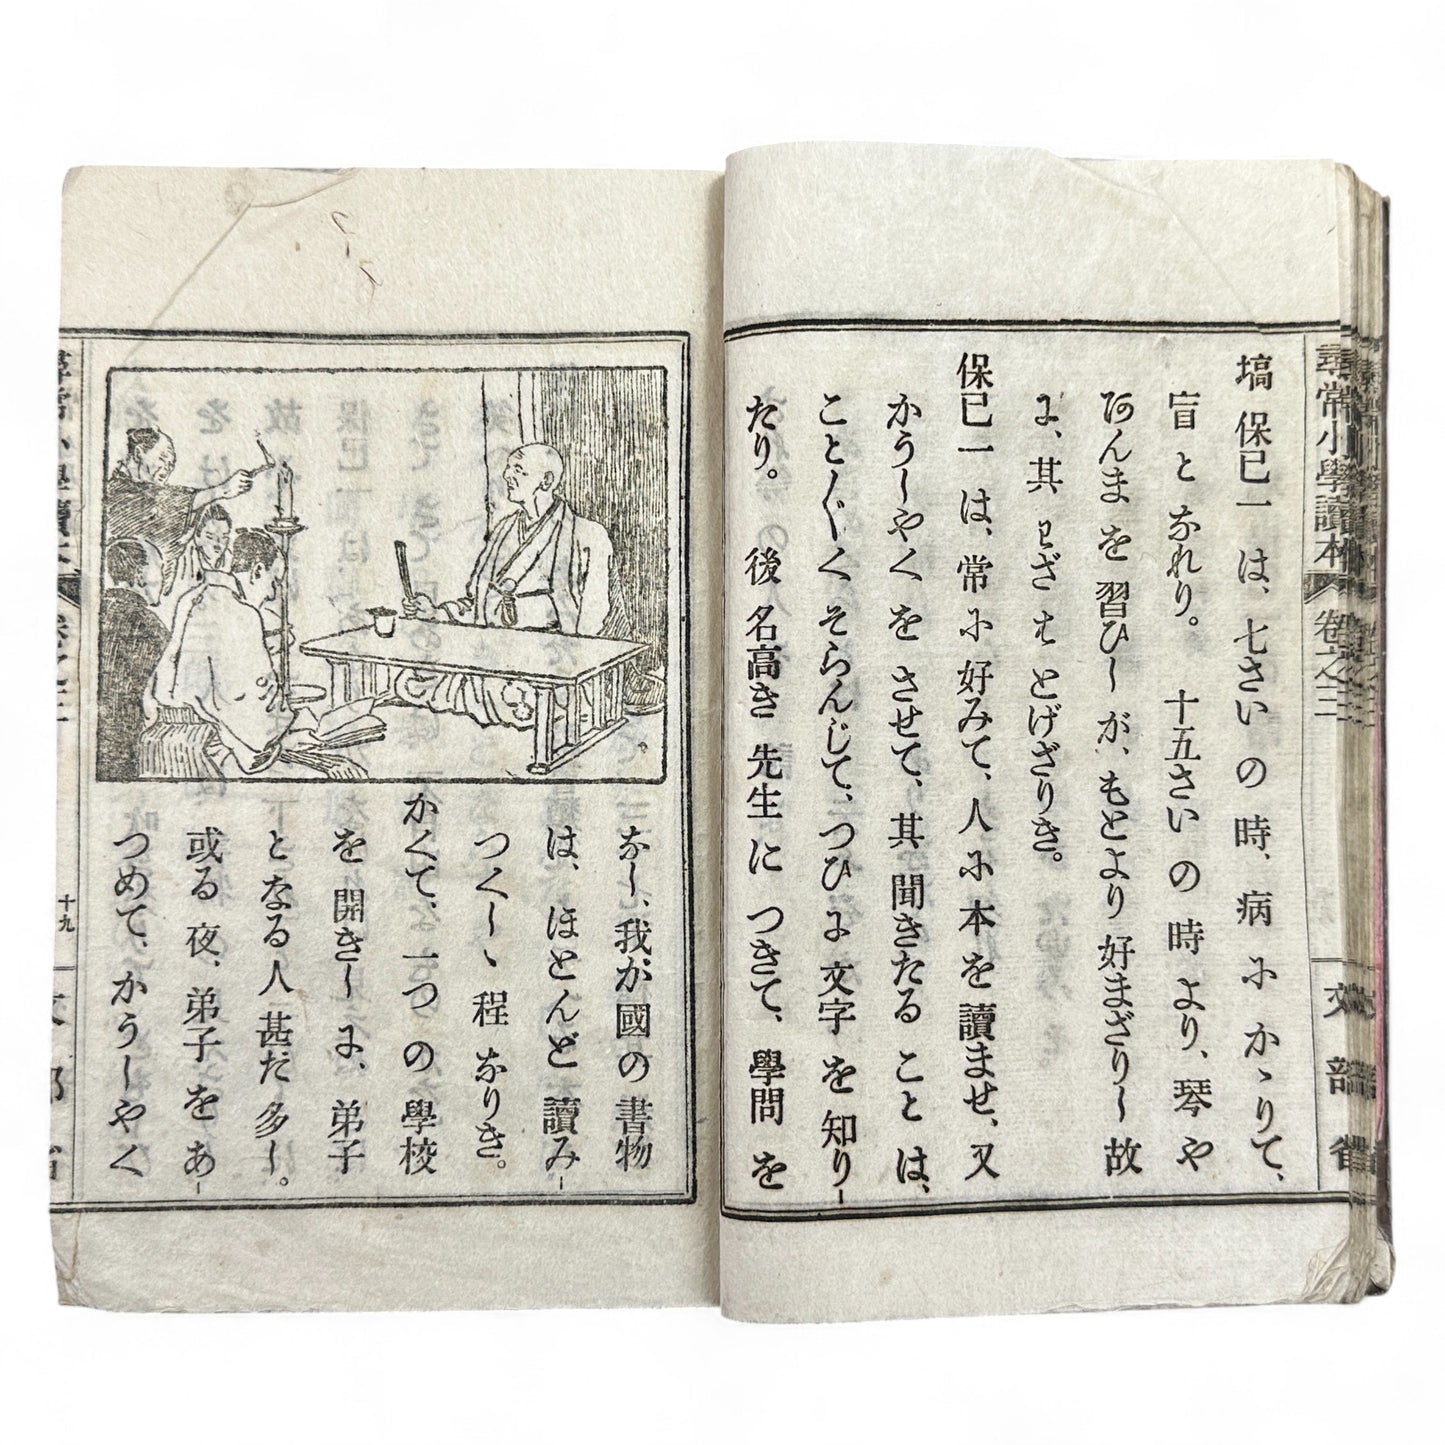 尋常小學讀本 卷之三
文部省
塙保已一は、七さいの時、病にかゝりて、
盲となれり。 十五さいの時より、琴や
あんまを習ひしが、もとより好まざりし故
に、其わざはとげざりき。
保已一は、常に好みて、人に本を讀ませ、又
かうしやくをさせて、其聞きたることは、
ことごとくそらんじて、つひに文字を知り-
たり。 後名高き先生につきて、學問を
なし、我が國の書物
は、ほとんど讀み-
つくしゝ程なりき。
かくて、一つの學校
を開きしに、弟子
となる人甚だ多し。
或る夜、弟子をあ-
つめて、かうしやく
十九